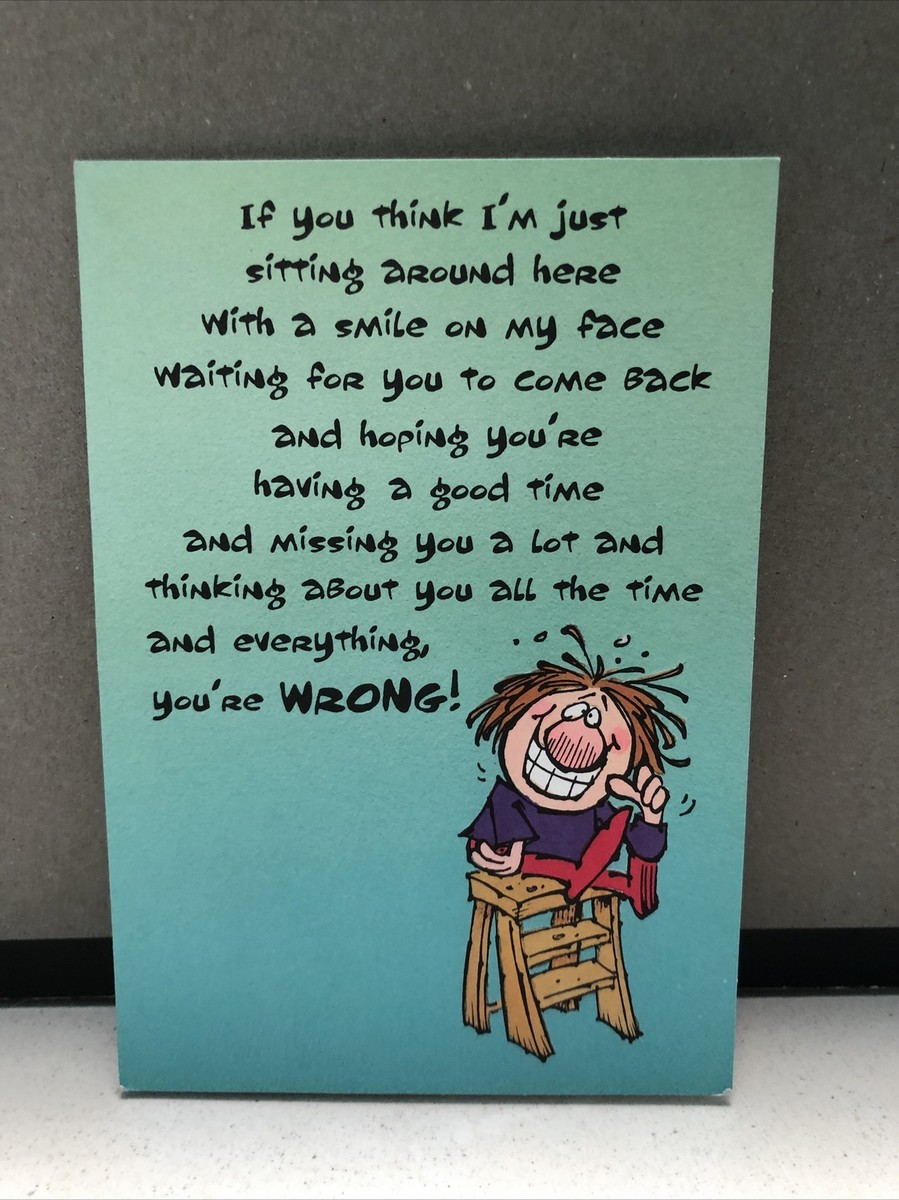 If you think I'm just
sitting around here
with a smile on my face
waiting for you to come back
and hoping you're
having a good time
and missing you a lot and
thinking about you all the time
and everything,
you're WRONG!